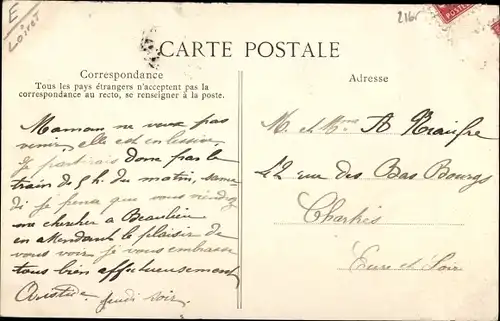 E
Loiret
216
POSTES
CARTE POSTALE
Correspondance
Tous les pays étrangers n'acceptent pas la
correspondance au recto, se renseigner à la poste.
Maman ne veux pas
venir, elle est en lessive
Je partirais donc par le
train de 5 h. du matin, same-
di je pense que vous viendrez
me chercher à Beaulieu
en attendant le plaisir de
vous voir je vous embrasse
tous bien affectueusement
Aristide jeudi soir
Adresse
M. et Mme A
42 rue des Bas Bourgs
Chartres
Eure et Loir